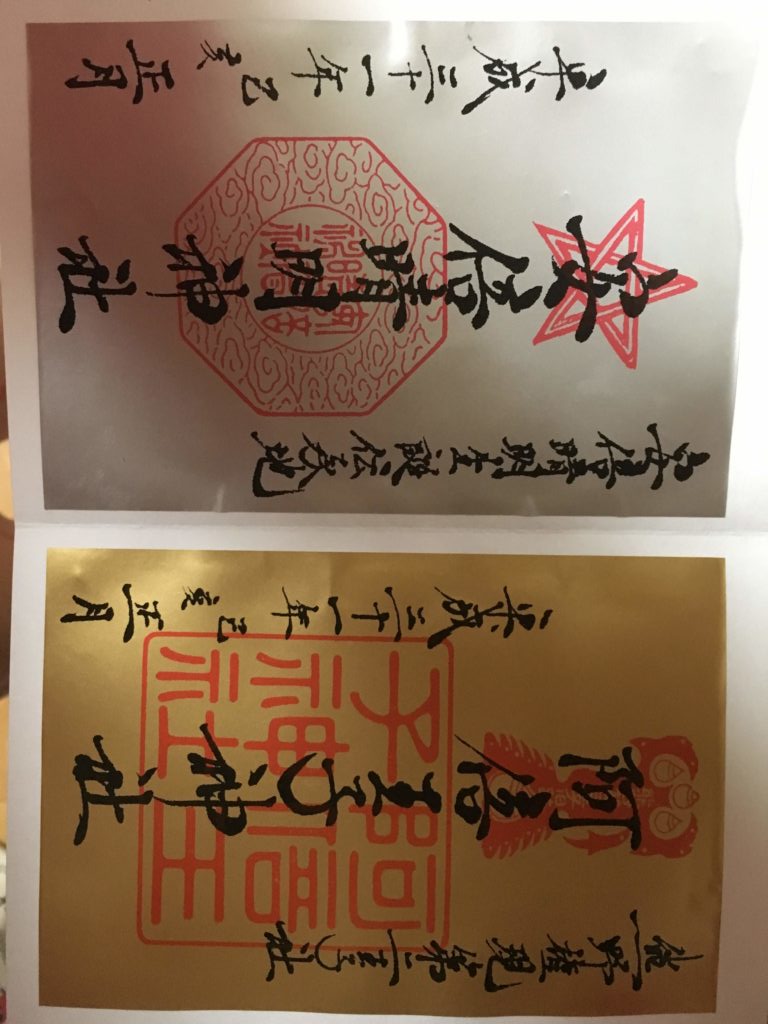 熊野権現第二王子社
阿倍王子神社
阿倍王
子神社
平成三十一年己亥正月
安倍晴明生誕伝承地
安倍晴明神社
平成三十一年己亥正月